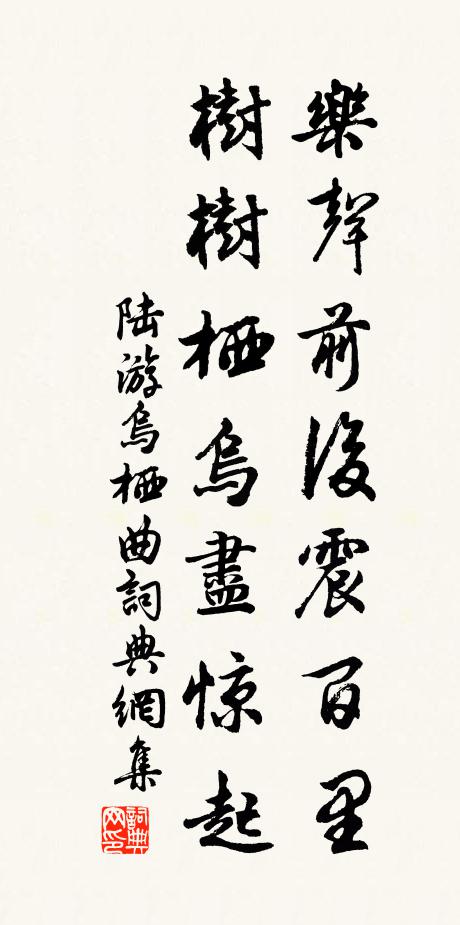 樂聲前後震百里
樹樹栖烏盡惊起
陸游烏栖曲詞典網集
詞典网印